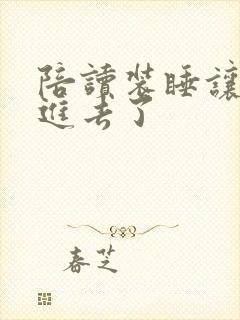 陪讀装睡讓
進去了
春芝